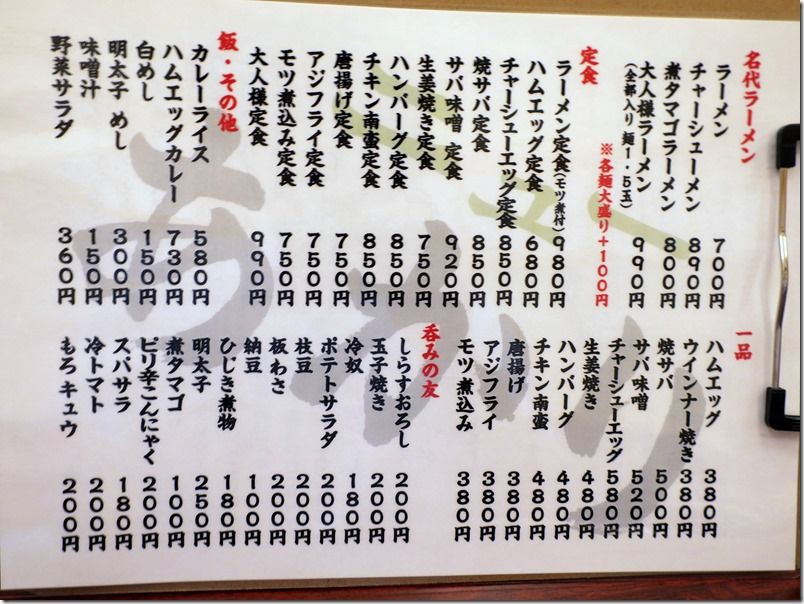 名代ラーメン
ラーメン 700円
チャーシューメン 890円
煮タマゴラーメン 800円
大人様ラーメン 990円
(全部入り麺1.5玉)
※各麺大盛り+100円
定食
ラーメン定食(モツ煮付) 980円
ハムエッグ定食 680円
チャーシューエッグ定食 850円
焼サバ定食 850円
サバ味噌 定食 920円
生姜焼き定食 750円
ハンバーグ定食 850円
チキン南蛮定食 850円
唐揚げ定食 750円
アジフライ定食 750円
モツ煮込み定食 750円
大人様定食 990円
飯・その他
カレーライス 580円
ハムエッグカレー 730円
白めし 150円
明太子 めし 300円
味噌汁 150円
野菜サラダ 360円
一品
ハムエッグ 380円
ウインナー焼き 380円
焼サバ 500円
サバ味噌 520円
チャーシューエッグ 580円
生姜焼き 480円
ハンバーグ 480円
チキン南蛮 480円
唐揚げ 380円
アジフライ 380円
モツ煮込み 380円
呑みの友
しらすおろし 200円
玉子焼き 200円
冷奴 180円
ポテトサラダ 200円
枝豆 200円
板わさ 200円
納豆 100円
ひじき煮物 180円
明太子 250円
煮タマゴ 100円
ピリ辛こんにゃく 200円
スパサラ 180円
冷トマト 200円
もろキュウ 200円
メニュー
あかり